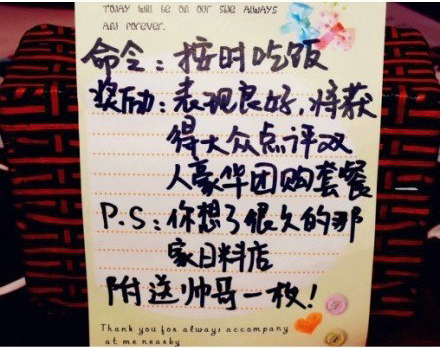 TODAY will be on our side ALWAYS
AND FOREVER.
命令：按时吃饭
奖励：表现良好，将获
得大众点评双
人豪华团购套餐
P.S：你想了很久的那
家日料店
附送帅哥一枚！
Thank you for always accompany
at me nearby